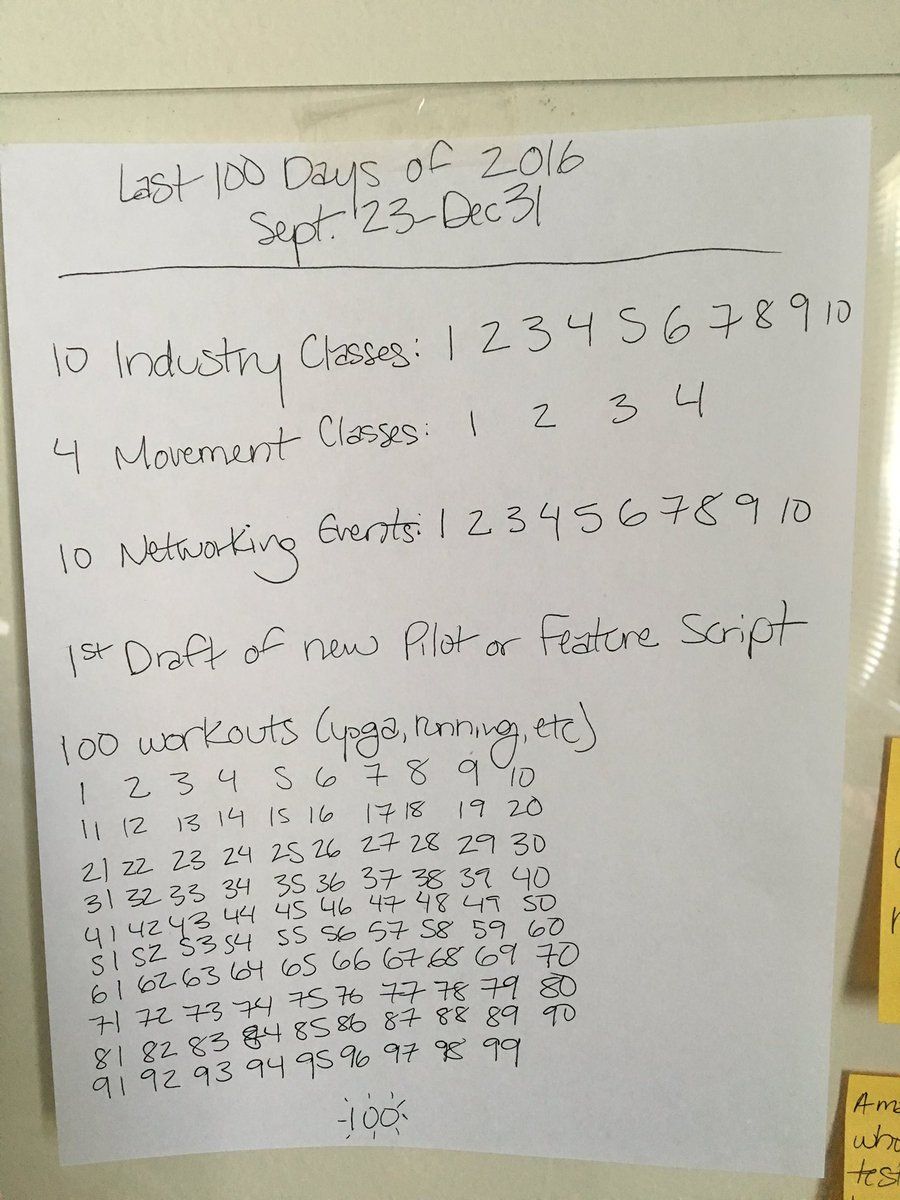 Last 100 Days of 2016
Sept. 23-Dec 31
10 Industry Classes: 1 2 3 4 5 6 7 8 9 10
4 Movement Classes: 1 2 3 4
10 Networking Events: 1 2 3 4 5 6 7 8 9 10
1st Draft of new Pilot or Feature Script
100 workouts (yoga, running, etc)
1 2 3 4 5 6 7 8 9 10
11 12 13 14 15 16 17 18 19 20
21 22 23 24 25 26 27 28 29 30
31 32 33 34 35 36 37 38 39 40
41 42 43 44 45 46 47 48 49 50
51 52 53 54 55 56 57 58 59 60
61 62 63 64 65 66 67 68 69 70
71 72 73 74 75 76 77 78 79 80
81 82 83 84 85 86 87 88 89 90
91 92 93 94 95 96 97 98 99
100